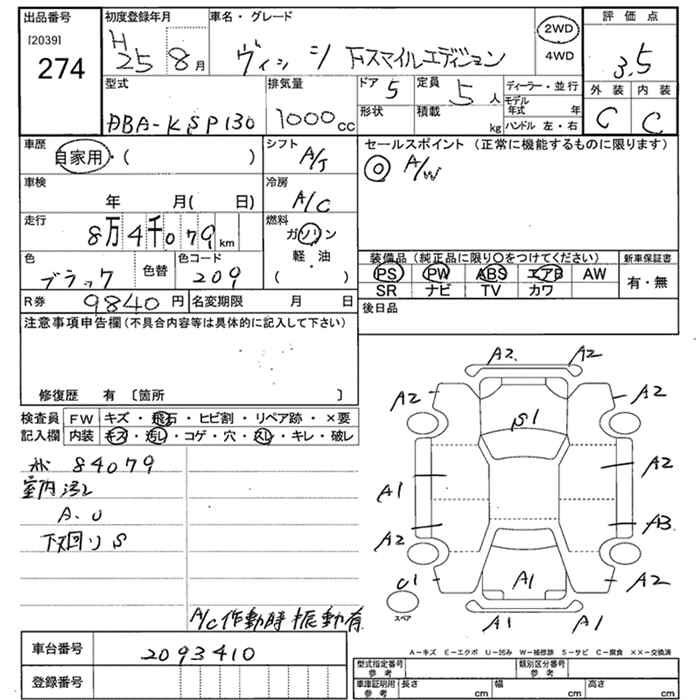 出品番号 初度登録年月 車名・グレード 2WD 評価点
[2039] H 25 8月 ヴィッツ Fスマイルエディション 4WD 3.5
274
型式 排気量 ドア 5 定員 5人 ディーラー・並行 外装 内装
DBA-KSP130 1000cc 形状 積載 kg モデル年式 年 C C
ハンドル 左・右
車歴 シフト セールスポイント (正常に機能するものに限ります)
自家用・( ) A/T ◎ A/W
車検 冷房
年 月( 日) A/C
走行 燃料
8万4千079km ガソリン
軽・油
( )
装備品 (純正品に限り○をつけてください) 新車保証書
色 色替 色コード PS PW ABS エアB AW 有・無
ブラック 209 SR ナビ TV カワ
R券 9840円 名変期限 月 日 後日品
注意事項申告欄(不具合内容等は具体的に記入して下さい)
修復歴 有 〔箇所 〕
検査員 FW キズ・飛石・ヒビ割・リペア跡・×要
記入欄 内装 キズ・汚レ・コゲ・穴・スレ・キレ・破レ
84079
室内汚レ
A.U
下回りS
A/C作動時振動有
A2 A2
A2 A2
S1
A1 A2
A2 A3
U1 A1 A2
スペア
A1 A1
A-キズ E-エクボ U-凹み W-補修跡 S-サビ C-腐食 ××-交換済
車台番号 2093410
登録番号
型式指定番号 参考 類別区分番号 参考
車庫証明用 参考 長さ cm 幅 cm 高さ cm